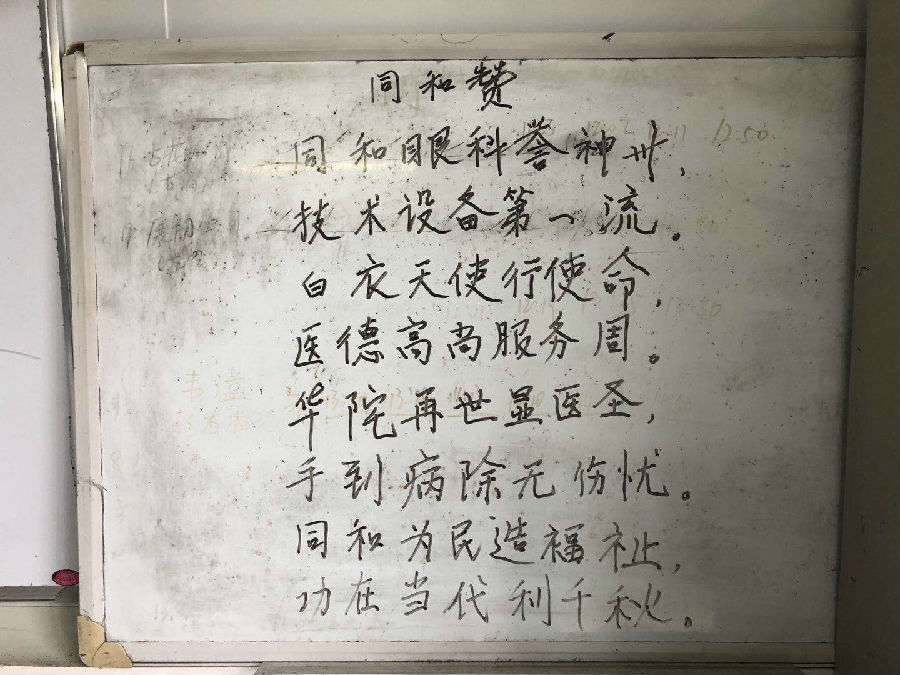 同和赞
同和眼科誉神州,
技术设备第一流。
白衣天使行使命,
医德高尚服务周。
华院再世显医圣,
手到病除无伤忧。
同和为民造福祉,
功在当代利千秋。
12:50